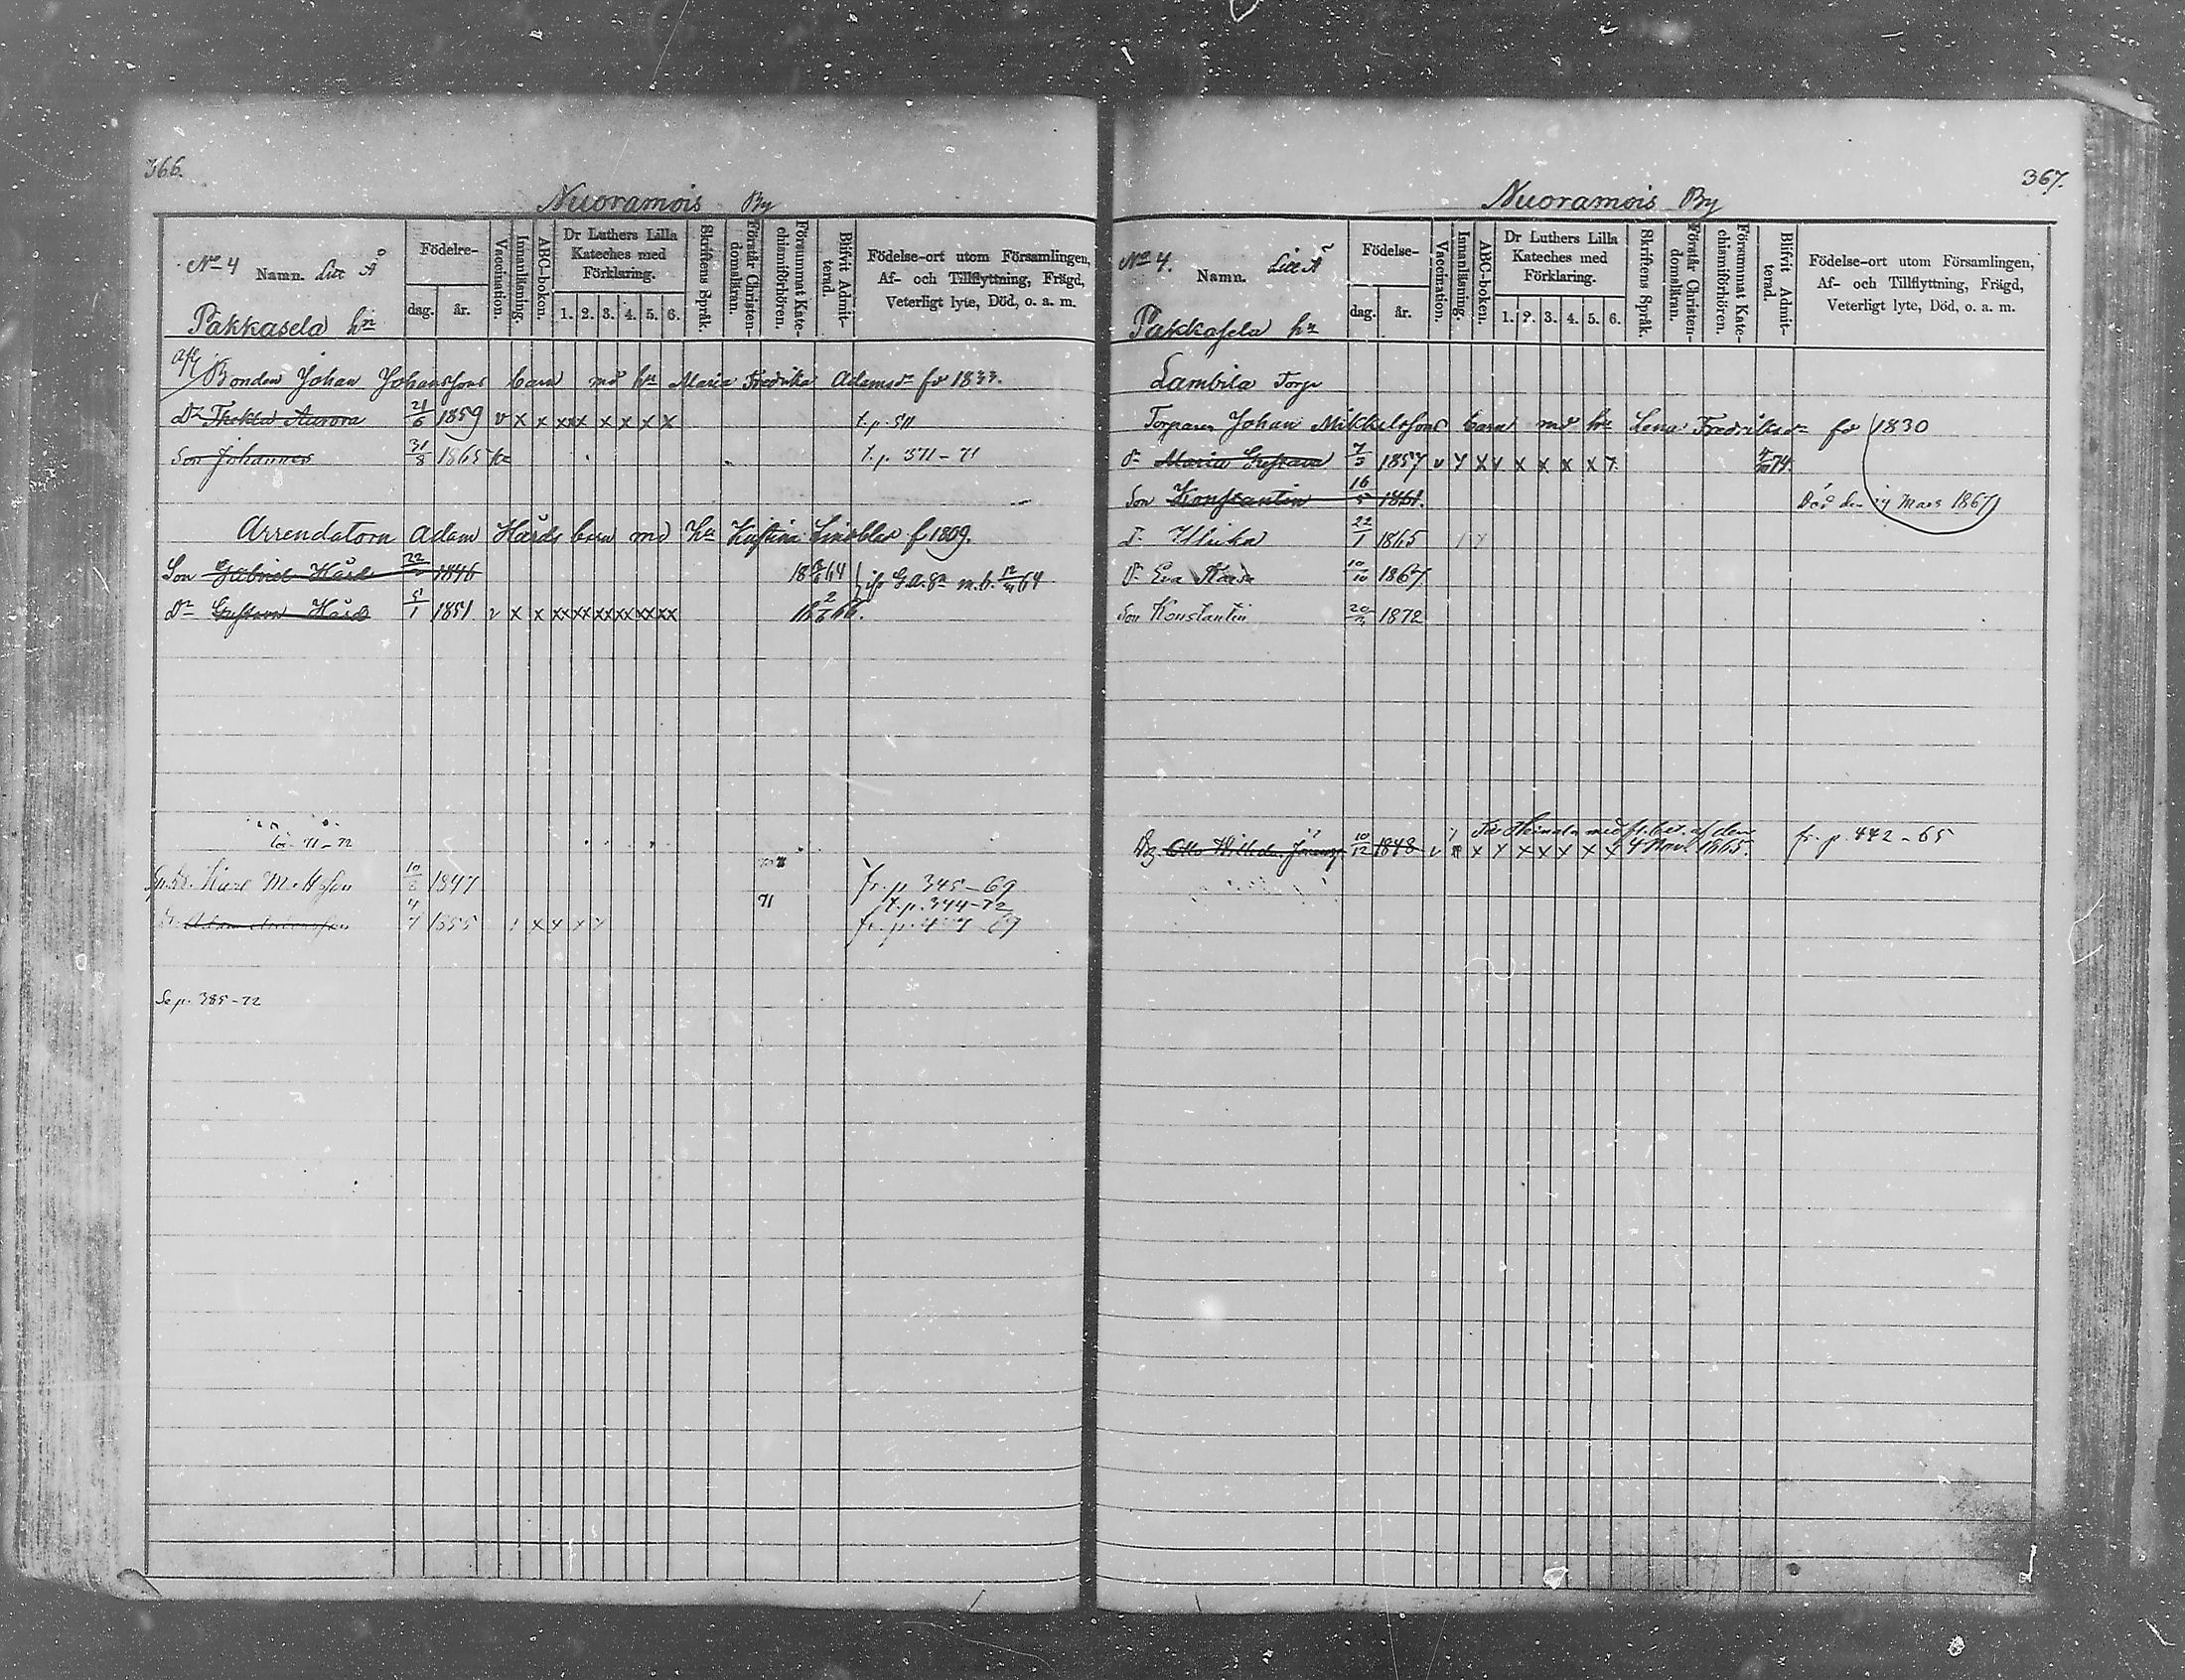 366.
Nuoramois By
No 4 Namn. Litt Å
Pakkasela hn
Födelse-
dag. år.
Vaccination.
Innanläsning.
ABC-boken.
Dr Luthers Lilla Kateches med Förklaring.
1. 2. 3. 4. 5. 6.
Skriftens Språk.
Förstår Christendomsläran.
Försummat Katechismiförhören.
Blifvit Admitterad.
Födelse-ort utom Församlingen,
Af- och Tillflyttning, Frägd,
Veterligt lyte, Död, o. a. m.
Bonden Johan Johanssons barn md hu Maria Fredrika Adamsdr fd 1833.
Dr Thekla Aurora 21/6 1859 v x x xxx x x x x x t. p. 511
Son Johannes 31/8 1865 t. p. 371-71
Arrendatorn Adam Hårds barn md hu f 1809.
Son Gabriel Hård 22 1846 64
Dr Gustava Hård 5/1 1851 v x x xx xx xx xx xx xx 66.
71-72
10/2 1847 fr. p. 345-69
71 t. p. 344-72
1855 x x x x fr. p.
Se p. 385-72
367.
Nuoramois By
No 4. Namn. Litt Å
Pakkasela hn
Födelse-
dag. år.
Vaccination.
Innanläsning.
ABC-boken.
Dr Luthers Lilla Kateches med Förklaring.
1. 2. 3. 4. 5. 6.
Skriftens Språk.
Förstår Christendomsläran.
Försummat Katechismiförhören.
Blifvit Admitterad.
Födelse-ort utom Församlingen,
Af- och Tillflyttning, Frägd,
Veterligt lyte, Död, o. a. m.
Lambila Torp
Torparen Johan Mikkelssons barn md hu Lena Fredriksdr fd 1830
Dr Maria Gustava 1857 v x x x x x x x 74
Son Konstantin 16/5 1861. Död den Mars 1867
Dr Ulrika 22/1 1865
Dr Eva Kaisa 10/10 1867
Son Konstantin 1872
Till Heinola med fl. bet. af den
Otto Wilhelm 10/12 1848 v x x x x x x x 4 Nov. 1865. fr. p. 442-65